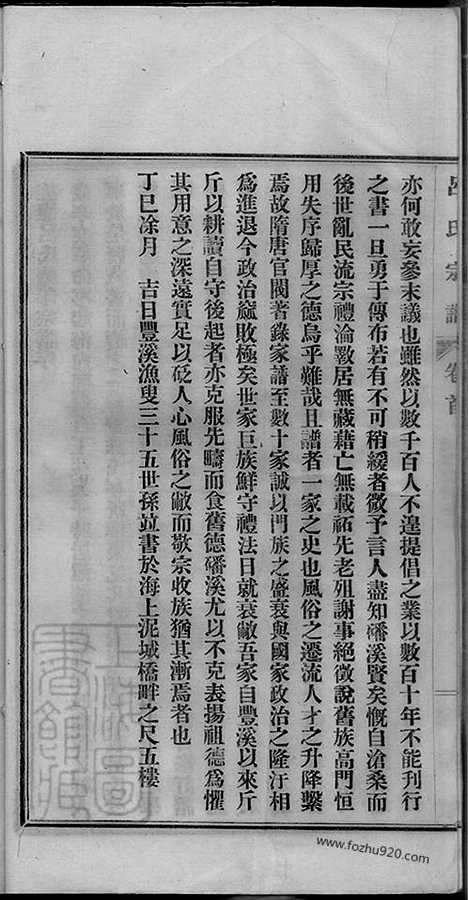 呂氏宗譜 卷首
亦何敢妄參末議也雖然以數千百人不遑提倡之業以數百十年不能刊行
之書一旦勇于傳布若有不可稍緩者微予言人盡知磻溪賢矣慨自滄桑而
後世亂民流宗禮淪斁居無藏藉亡無載祏先老殂謝事絕徵說舊族高門恒
用失序歸厚之德烏乎難哉且譜者一家之史也風俗之遷流人才之升降繫
焉故隋唐官閥著錄家譜至數十家誠以門族之盛衰與國家政治之隆汙相
為進退今政治巟敗極矣世家巨族鮮守禮法日就衰敝吾家自豐溪以來斤
斤以耕讀自守後起者亦克服先疇而食舊德磻溪尤以不克表揚祖德為懼
其用意之深遠實足以砭人心風俗之敝而敬宗收族猶其漸焉者也
丁巳涂月 吉日豐溪漁叟三十五世孫竝書於海上泥城橋畔之尺五樓
上海圖
書館藏
www.fozhu920.com